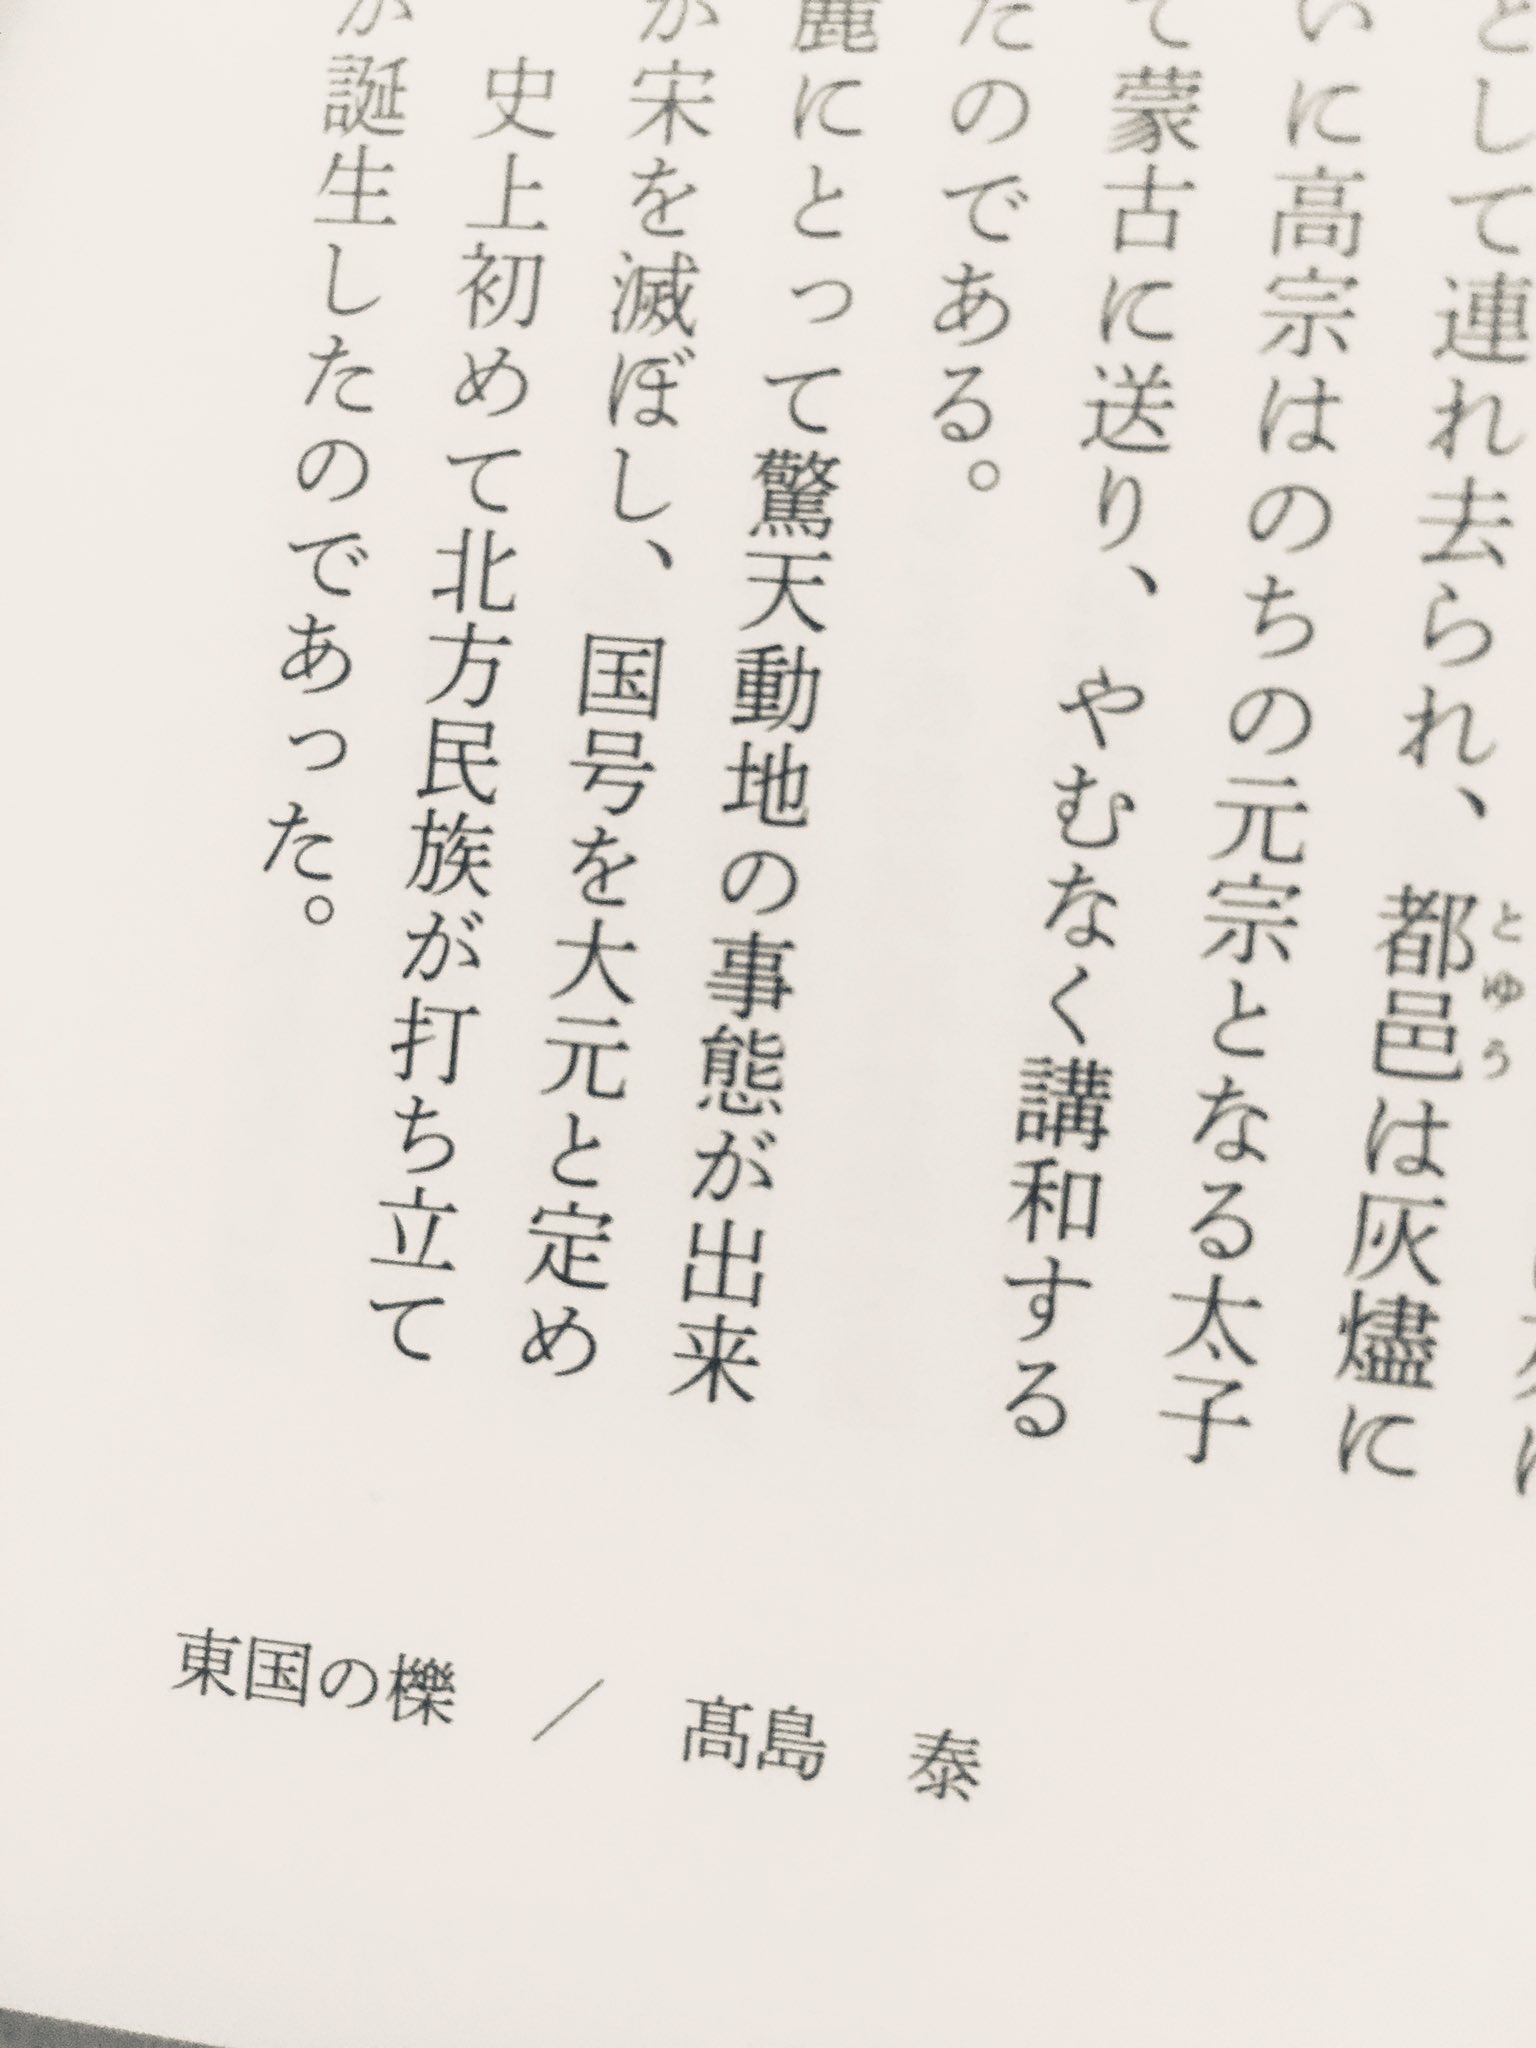 として連れ去られ、都邑は灰燼に
とゆう
いに高宗はのちの元宗となる太子
て蒙古に送り、やむなく講和する
たのである。
麗にとって驚天動地の事態が出来
が宋を滅ぼし、国号を大元と定め
史上初めて北方民族が打ち立て
が誕生したのであった。
東国の櫟 ／ 髙島 泰